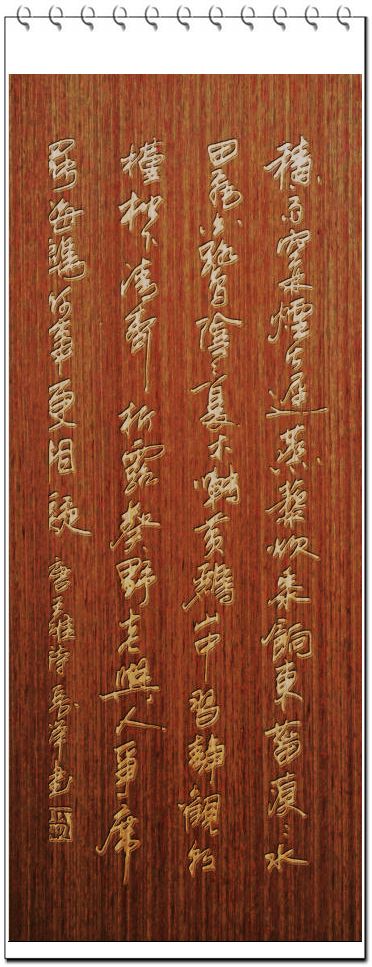 積雨空林煙火遲蒸藜炊黍餉東菑漠漠水
田飛白鷺陰陰夏木囀黃鸝山中習靜觀朝
槿松下清齋折露葵野老與人爭席
罷海鷗何事更相疑 唐王維詩